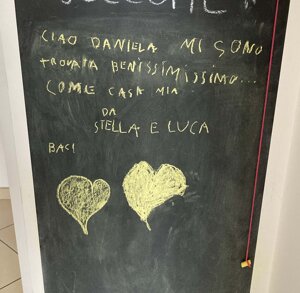 CIAO DANIELA MI SONO
TROVATA BENISSIMISSIMO...
COME CASA MIA
DA
STELLA E LUCA
BACI